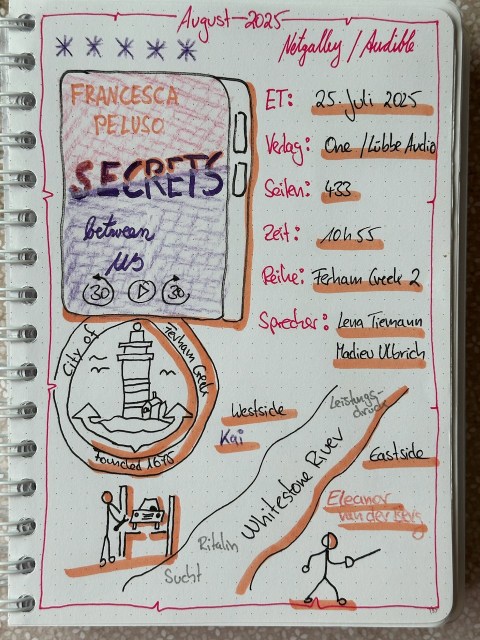 August 2025
Netzgalley / Audible
FRANCESCA
PELUSO
SECRETS
between
us
30
30
ET: 25. Juli 2025
Verlag: One / Lübbe Audio
Seiten: 433
Zeit: 10h55
Reihe: Ferham Creek 2
Sprecher: Lena Tiemann
Madieu Ulbrich
City of Ferham Creek
founded 1675
Westside
Kai
Leistungs-
druck
Whitestone River
Eastside
Eleanor
van der Berg
Ritalin
Sucht